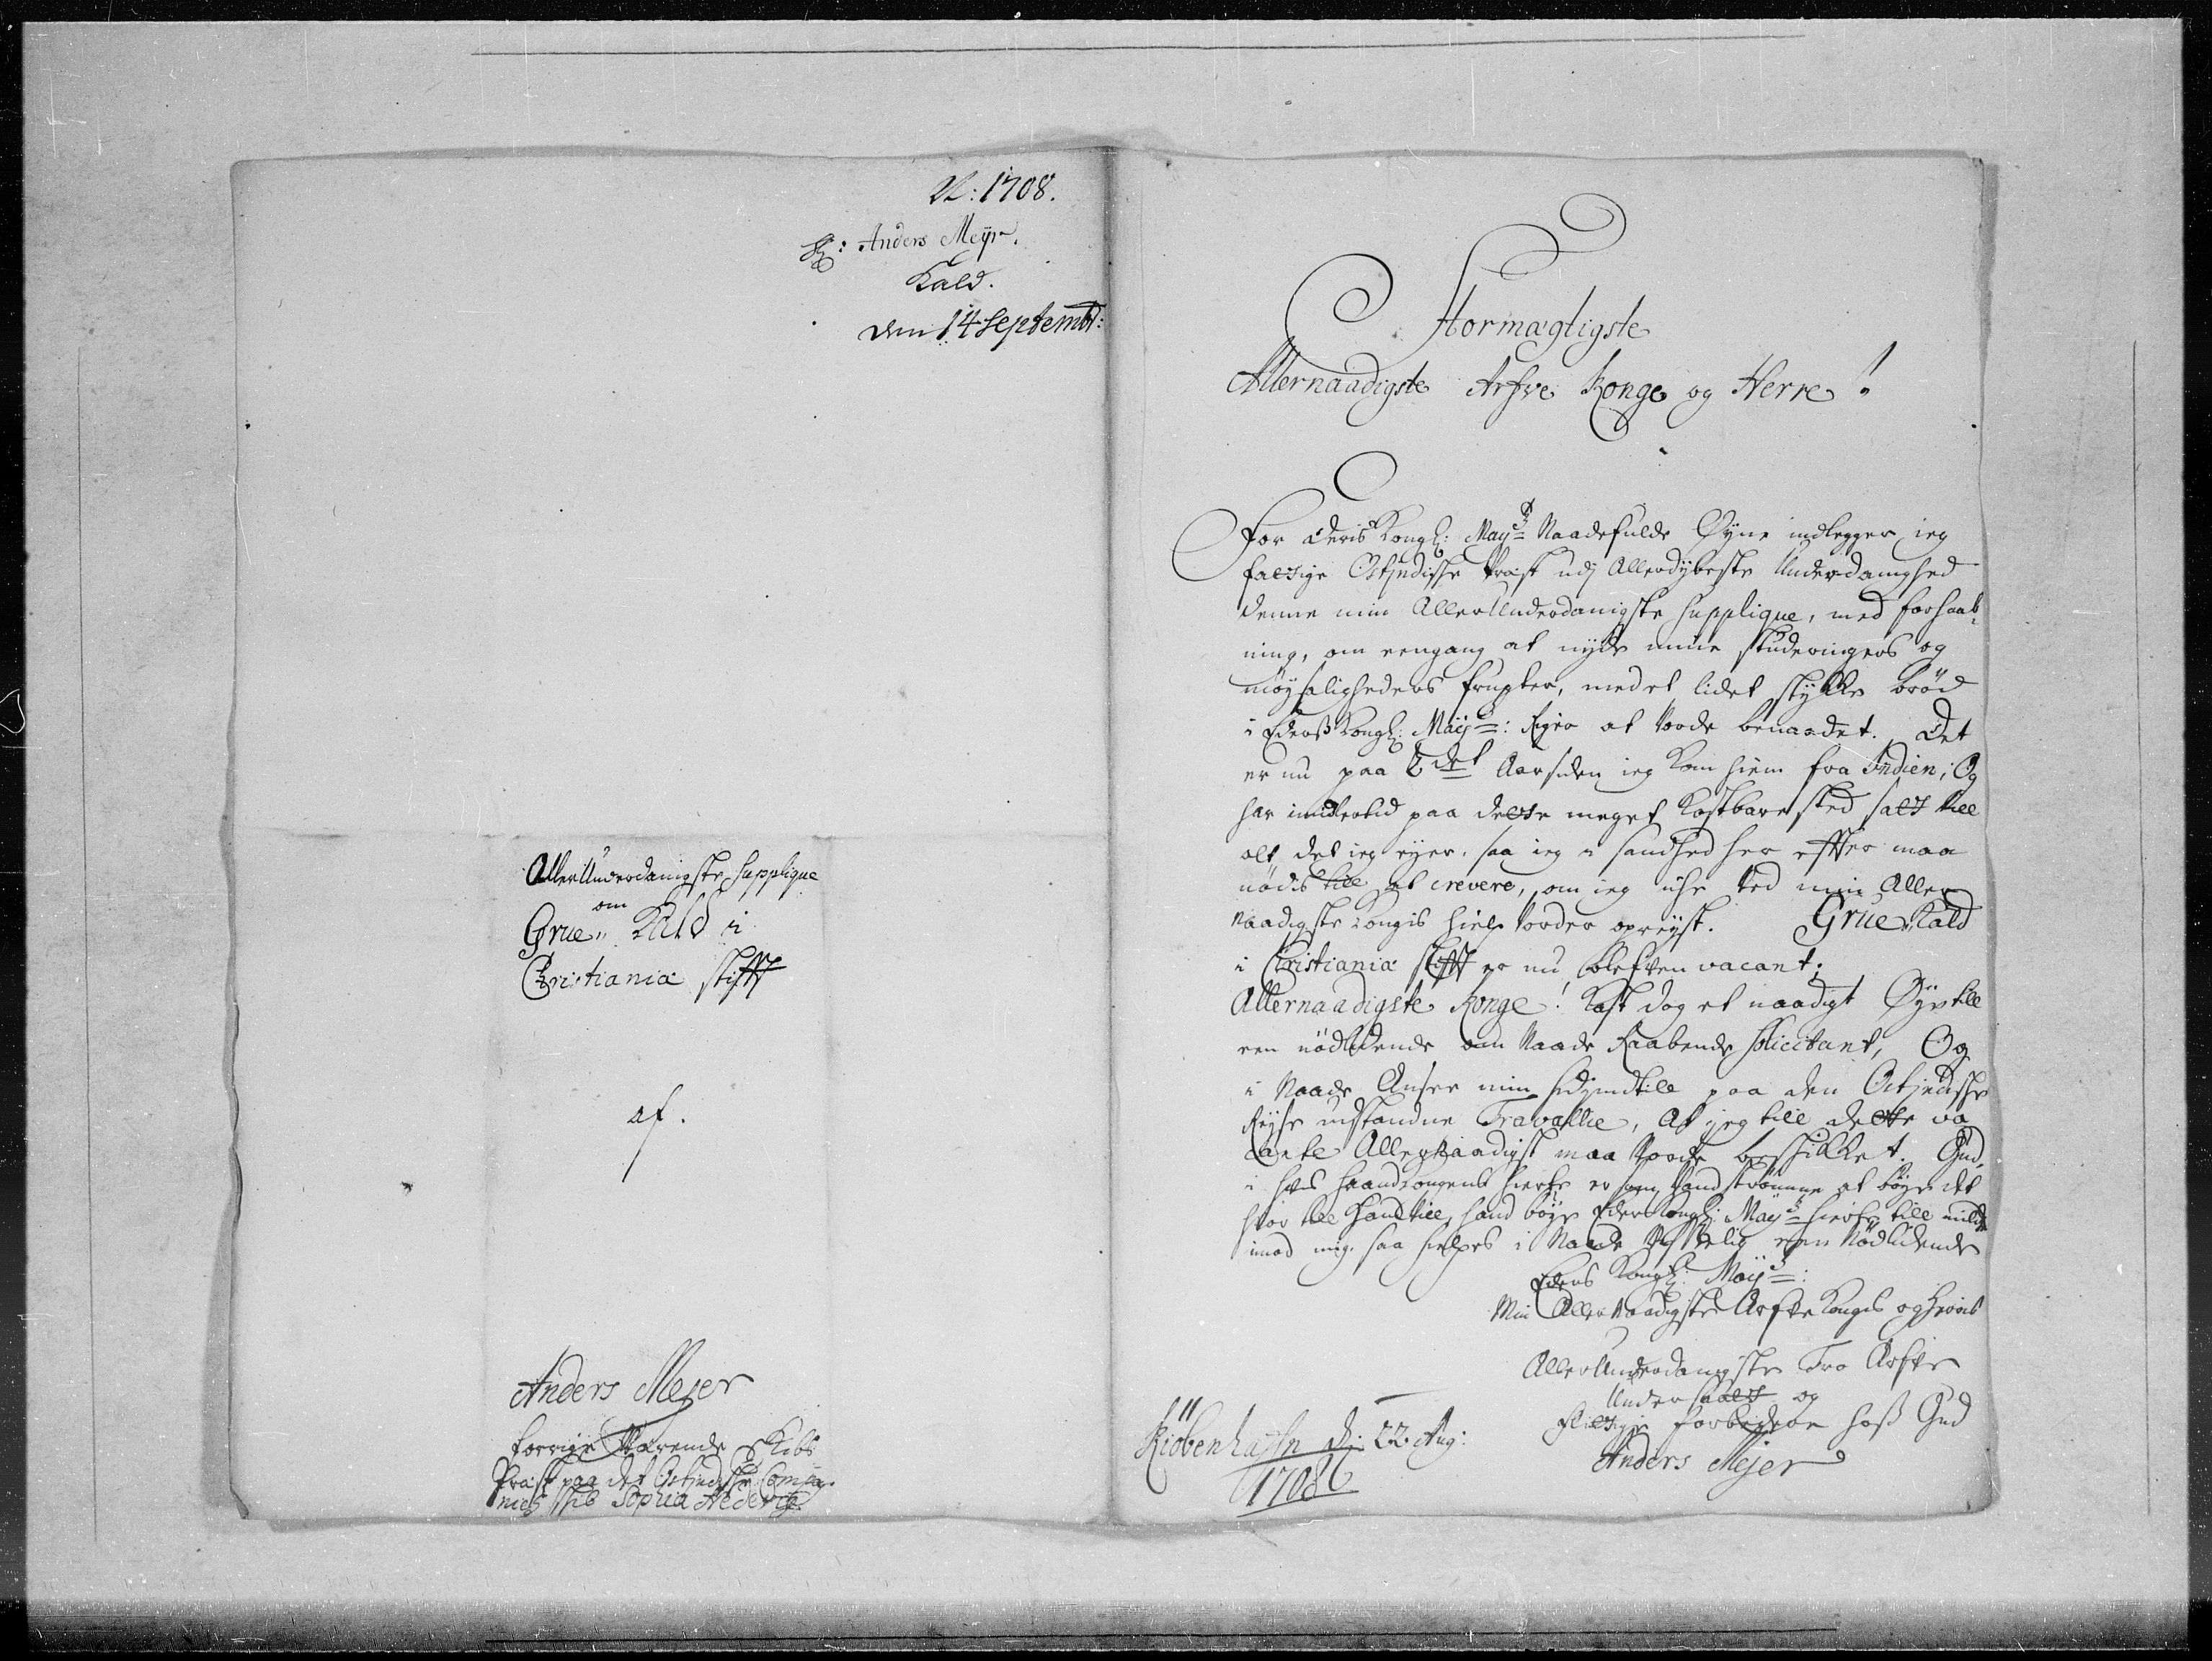 A: 1708.
H: Anders Meyr.
Kald.
den 14 Septembr:
AllerUnderdanigste Supplique
om
Grue Kald i
Christiania Stifft
af.
Anders Mejer
forrige Værende Skibs
Præst paa det Ostjndische Compag-
nies Skib Sophia Hedevig
Stormægtigste
Allernaadigste Arfve Konge og Herre!
For Deris Kongl: Mayts Naadefulde Øyne indlegger jeg
fattige Ostjndische Præst udj Allerdybeste Underdanighed
denne min AllerUnderdanigste Supplique, med forhaab-
ning, om eengang at nyde mine Studeringers og
møysaligheders frugter, med et lidet stykke brød
i Eders Kongl: Mayts: Riger at vorde benaadet. Det
er nu paa 2det Aar siden jeg kom hiem fra Indien; Og
har imidlertid paa dette meget kostbare sted satt till
alt det jeg ejer, saa jeg i sandhed her effter maa
nødis till at crevere, om jeg icke ved min Aller
naadigste Kongis hielp vorder opreyst. Grue Kald
i Christiania Stifft er nu bleften vacant;
Allernaadigste Konge! Kast dog et naadigt Øye till
een nødlidende om Naade Raabende Solicitant, Og
i Naade Ansee min hidjndtill paa den Ostjndische
Reyse udstandne Travallie, At jeg till dette va-
cante Allernaadigst maa vorde beskikket. Gud,
i hvis haand Kongens hierte er som Vandstrømme at bøye det
hvor till hand vill, hand bøye Eders Kongl: Mayts hierte till mildhed
imod mig, saa hielpes i Naade een Nødlidende
Eders Kongl: Mayts:
Min Aller Naadigste Arfve Kongis og Herris
AllerUnderdanigste Tro Arfve
Undersaatt og
flittige forbedere hoss Gud
Anders Mejer
Kiøbenhafn d: 22 Aug:
1708